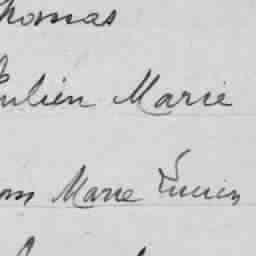 Thomas
Julien Marie
Marie Lucien